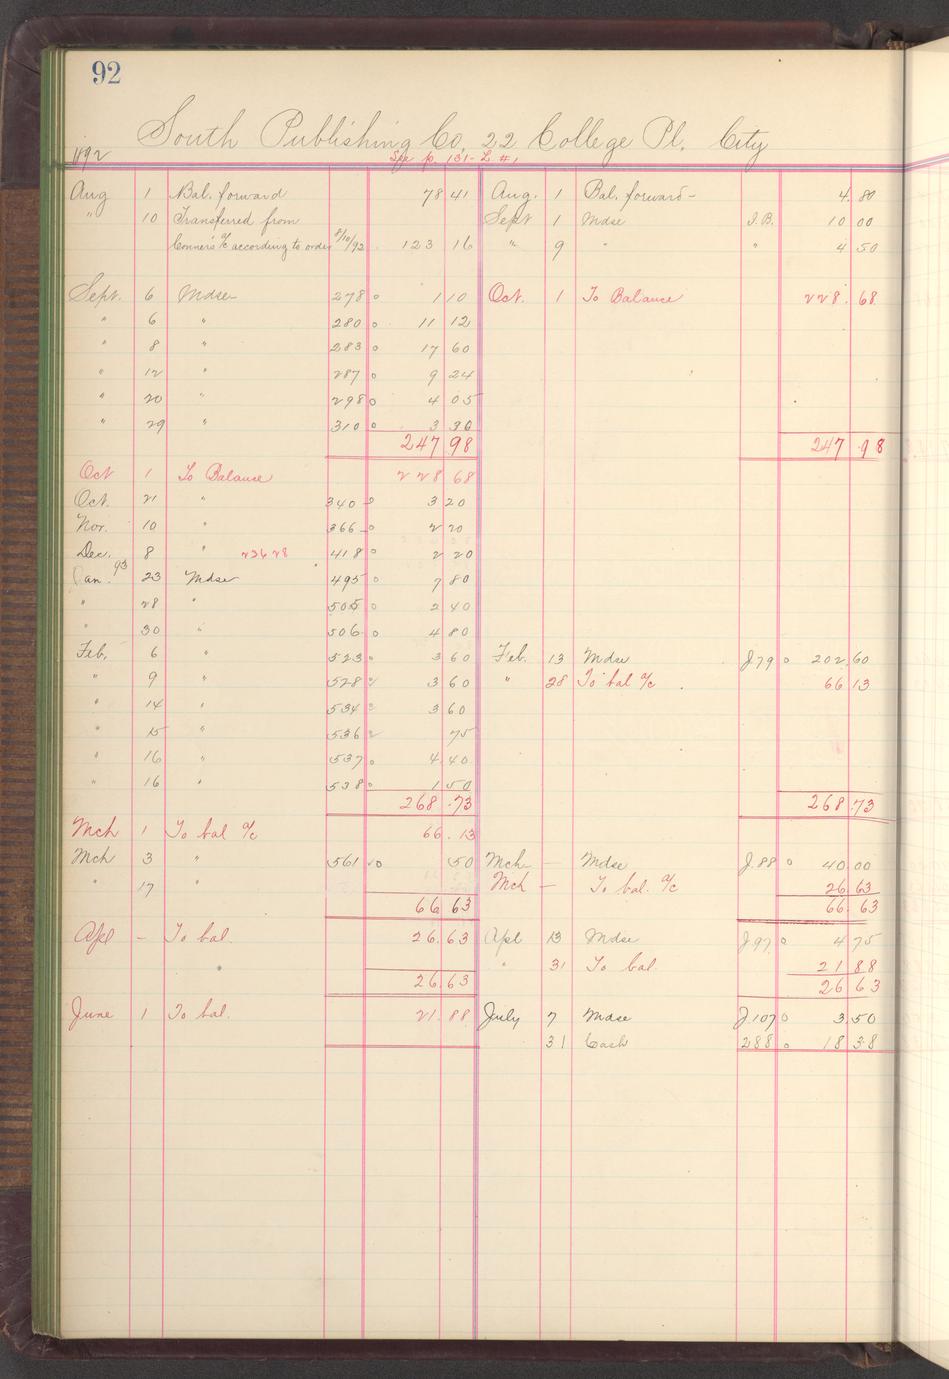 92
South Publishing Co, 22 College Pl. City
1892
See p. 131 - L. #1
Aug 1 Bal. forward 78 41
" 10 Transferred from
Conner's a/c according to order 8/10/92 123 16
Sept. 6 Mdse 278 o 1 10
" 6 " 280 o 11 12
" 8 " 283 o 17 60
" 12 " 287 o 9 24
" 20 " 298 o 4 05
" 29 " 310 o 3 30
247 98
Oct 1 To Balance 228 68
Oct. 21 " 340 o 3 20
Nov. 10 " 366 o 2 20
Dec. 8 " 236 28 418 o 2 20
Jan. 93 23 Mdse 495 o 7 80
" 28 " 505 o 2 40
" 30 " 506 o 4 80
Feb. 6 " 523 o 3 60
" 9 " 528 o 3 60
" 14 " 534 o 3 60
" 15 " 536 o 75
" 16 " 537 o 4 40
" 16 " 538 o 1 50
268 73
Mch 1 To bal a/c 66 13
Mch 3 " 561 o 50
" 17 "
66 63
Apl - To bal. 26 63
26 63
June 1 To bal. 21 88
Aug. 1 Bal. forward - 4 80
Sept 1 Mdse I.B. 10 00
" 9 " " 4 50
Oct. 1 To Balance 228 68
247 98
Feb. 13 Mdse J79 o 202 60
" 28 To bal a/c 66 13
268 73
Mch - Mdse J.88 o 40 00
Mch - To bal. a/c 26 63
66 63
Apl 13 Mdse J97 o 4 75
" 31 To bal. 21 88
26 63
July 7 Mdse J.107 o 3 50
31 Cash 288 o 18 38